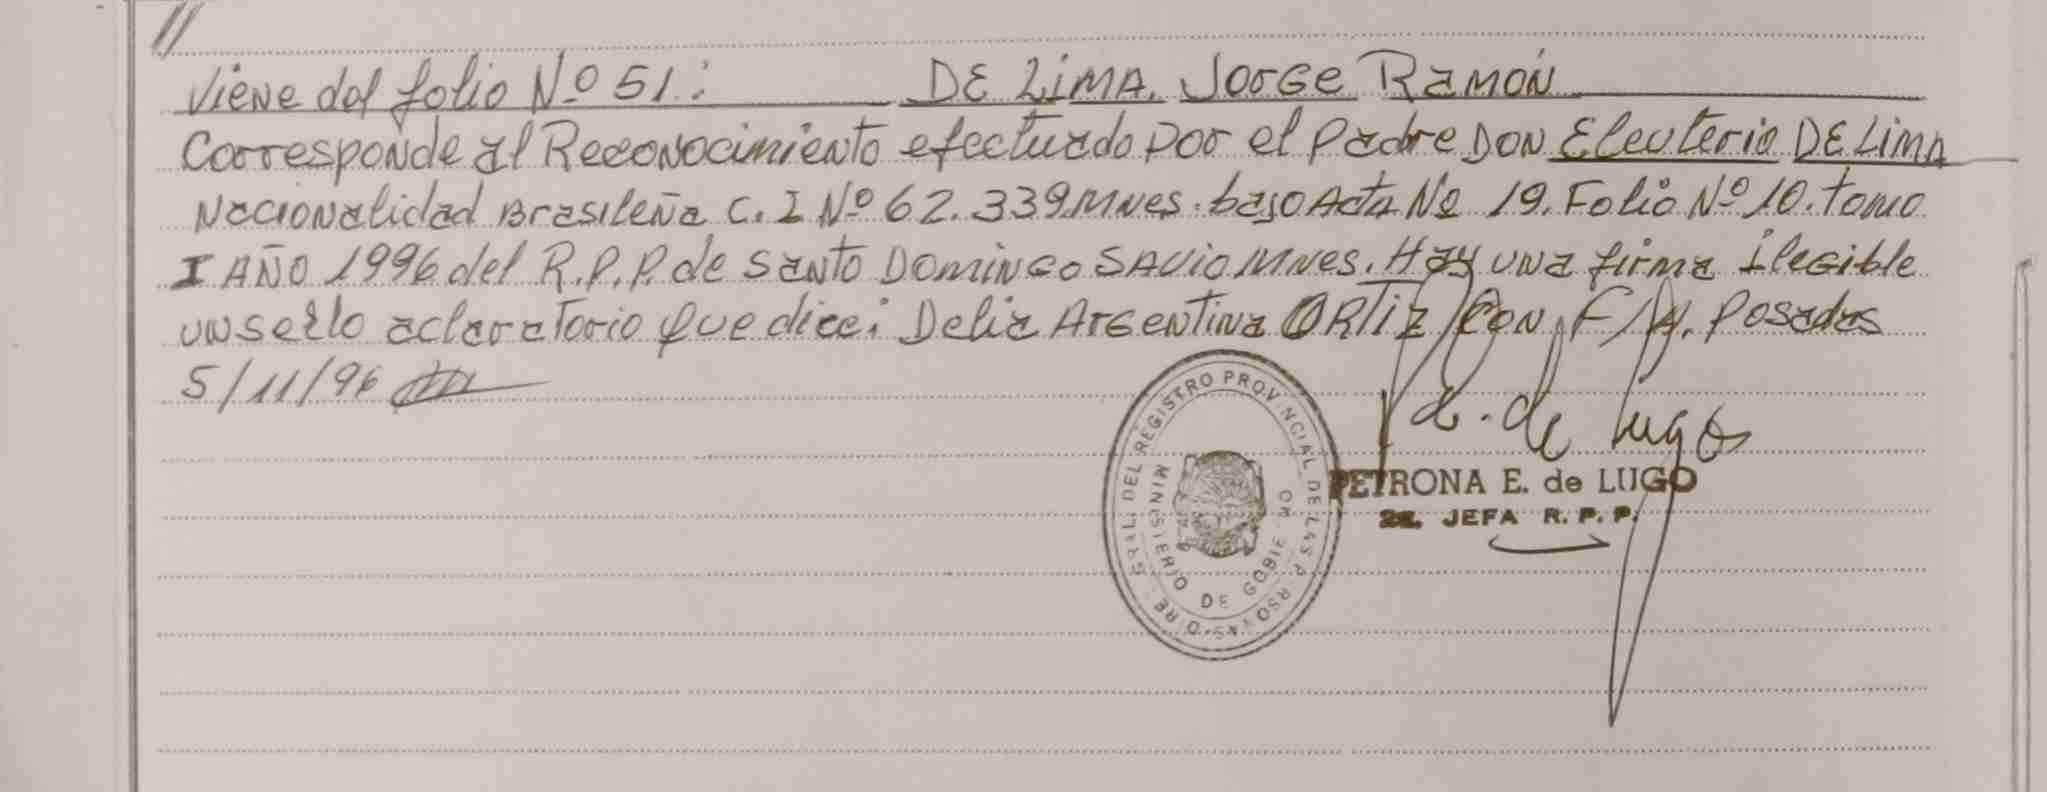 //
Viene del folio Nº 51.: DE LiMA. Jorge Ramón
Corresponde al Reconocimiento efectuado por el padre DON Eleuterio DE LiMA
Nacionalidad Brasileña C. I Nº 62.339 Mnes. bajo Acta Nº 19. Folio Nº 10. tomo
I AÑO 1996 del R.P.P. de Santo Domingo Savio Mnes. Hay una firma ilegible
un sello aclaratorio que dice: Delia Argentina ORTIZ Posadas
5/11/96
de Lugo
PETRONA E. de LUGO
2a. JEFA R. P. P.
GRAL. DEL REGISTRO PROVINCIAL DE LAS P RSONAS
MINISTERIO DE GOBIE NO